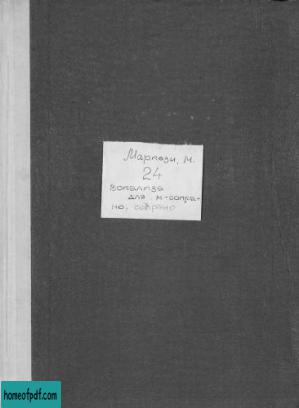 Маркези, М.
24
вокализа
для м-сопра-
но, сопрано
homeofpdf.com